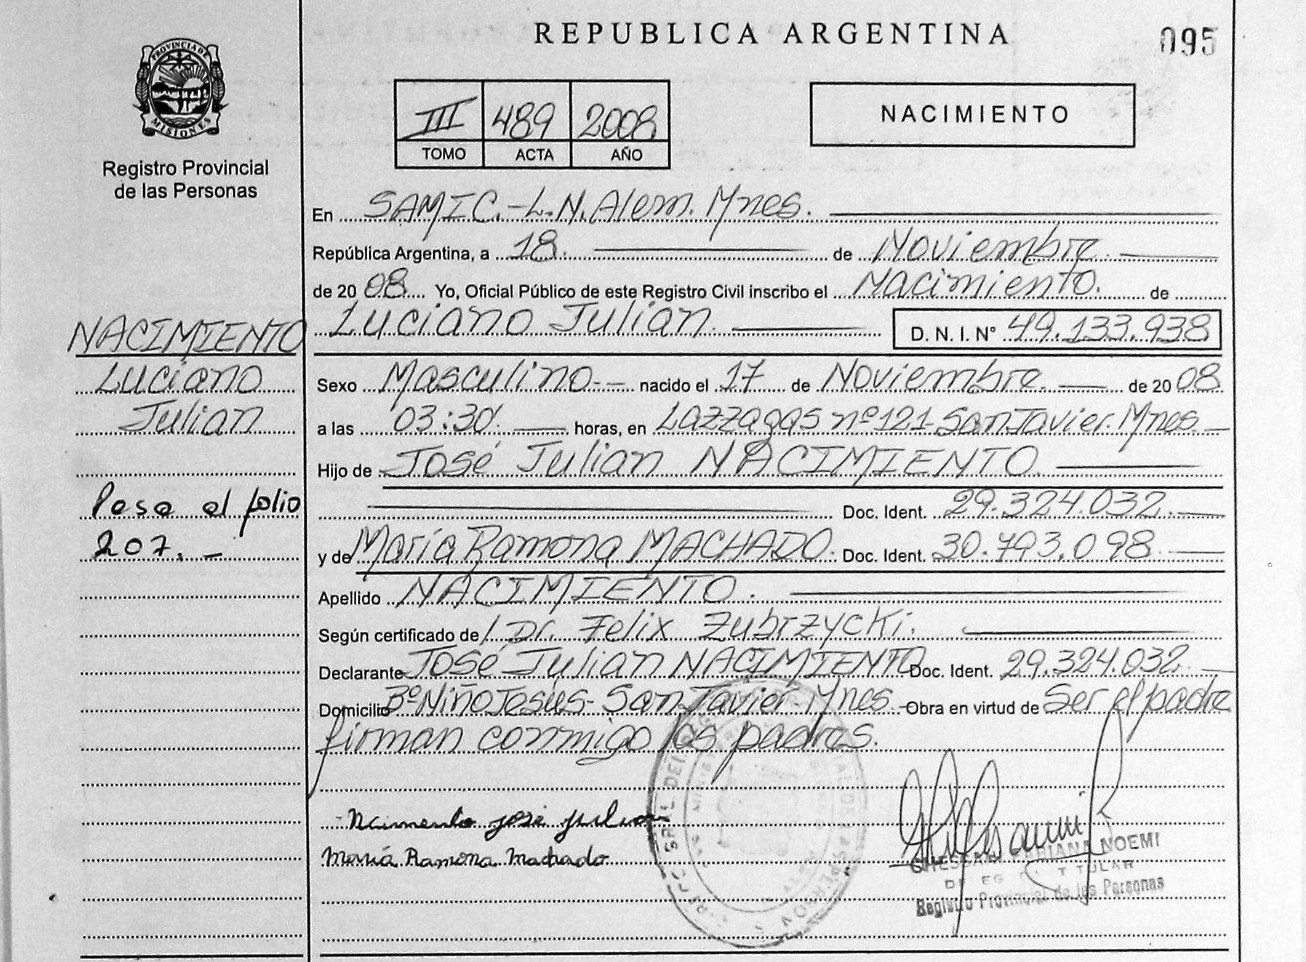 REPUBLICA ARGENTINA
095
PROVINCIA DE
MISIONES
Registro Provincial
de las Personas
III 489 2008
TOMO ACTA AÑO
NACIMIENTO
En SAMIC.-L.N.Alem. Mnes.
República Argentina, a 18. de Noviembre
de 2008 Yo, Oficial Público de este Registro Civil inscribo el Nacimiento. de
Luciano Julian D. N. I. N° 49.133.938
NACIMIENTO
Luciano
Julian
Pasa al folio
207. -
Sexo Masculino.- nacido el 17 de Noviembre de 2008
a las 03:30 horas, en Lazzagas nº 121-San Javier. Mnes.
Hijo de José Julian NACIMIENTO.
Doc. Ident. 29.324.032
y de María Ramona MACHADO. Doc. Ident. 30.793.098
Apellido NACIMIENTO.
Según certificado de Dr. Felix Zubrzycki.
Declarante José Julian NACIMIENTO Doc. Ident. 29.324.032
Domicilio Bº Niño Jesús-San Javier-Mnes.- Obra en virtud de Ser el padre
firman conmigo los padres.
José Julian
María Ramona Machado
NOEMI
TITULAR
Registro Provincial de las Personas